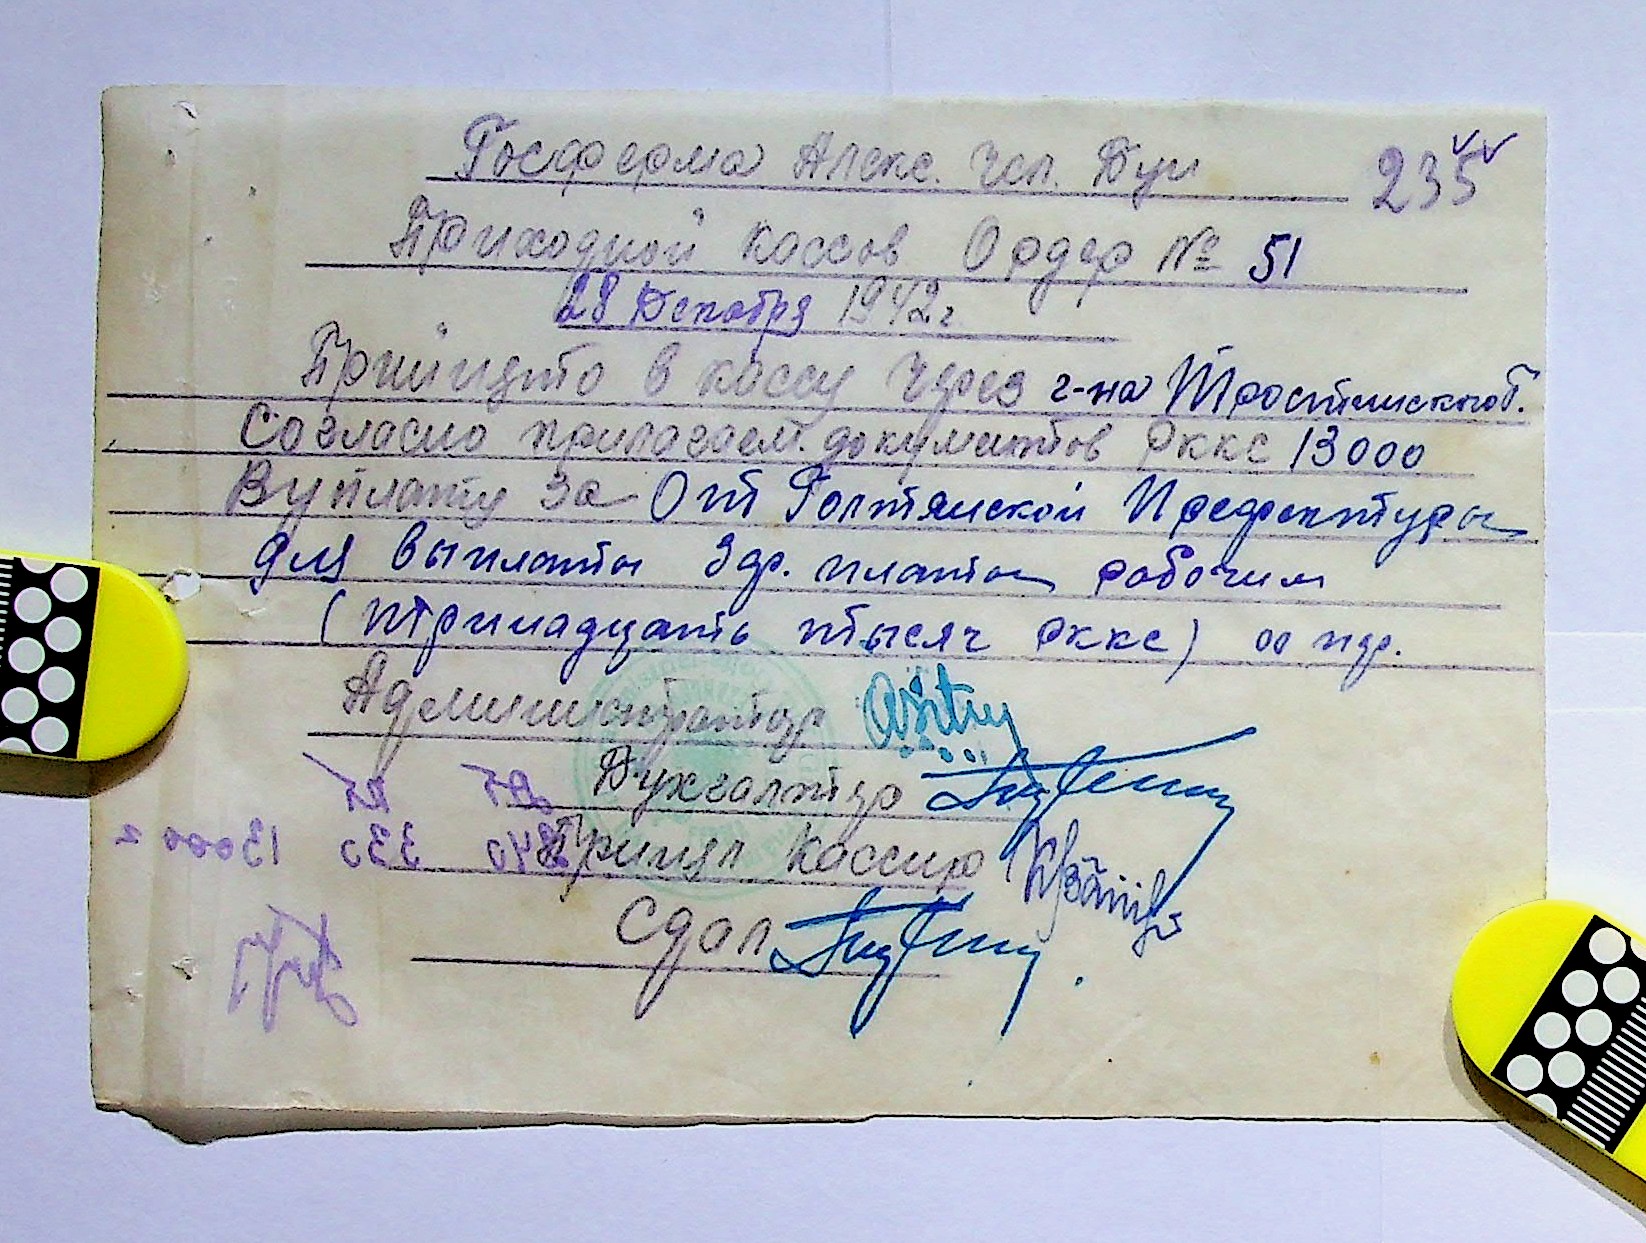 Госферма Алекс. Чел. Буи 235
Приходной кассов Ордер № 51
28 Декабря 1942 г
Прийнято в кассу Через г-на Тростянского Г.
Согласно прилагаем. документов Рккс 13000
В уплату за От Голтянской Префектуры
для выплаты Зар. платы рабочим
(Тринадцать тысяч рккс) оо пф.
Администратор
Бухгалтер
Принял Кассир
Сдал
Дт Кт
840 330 13000 =